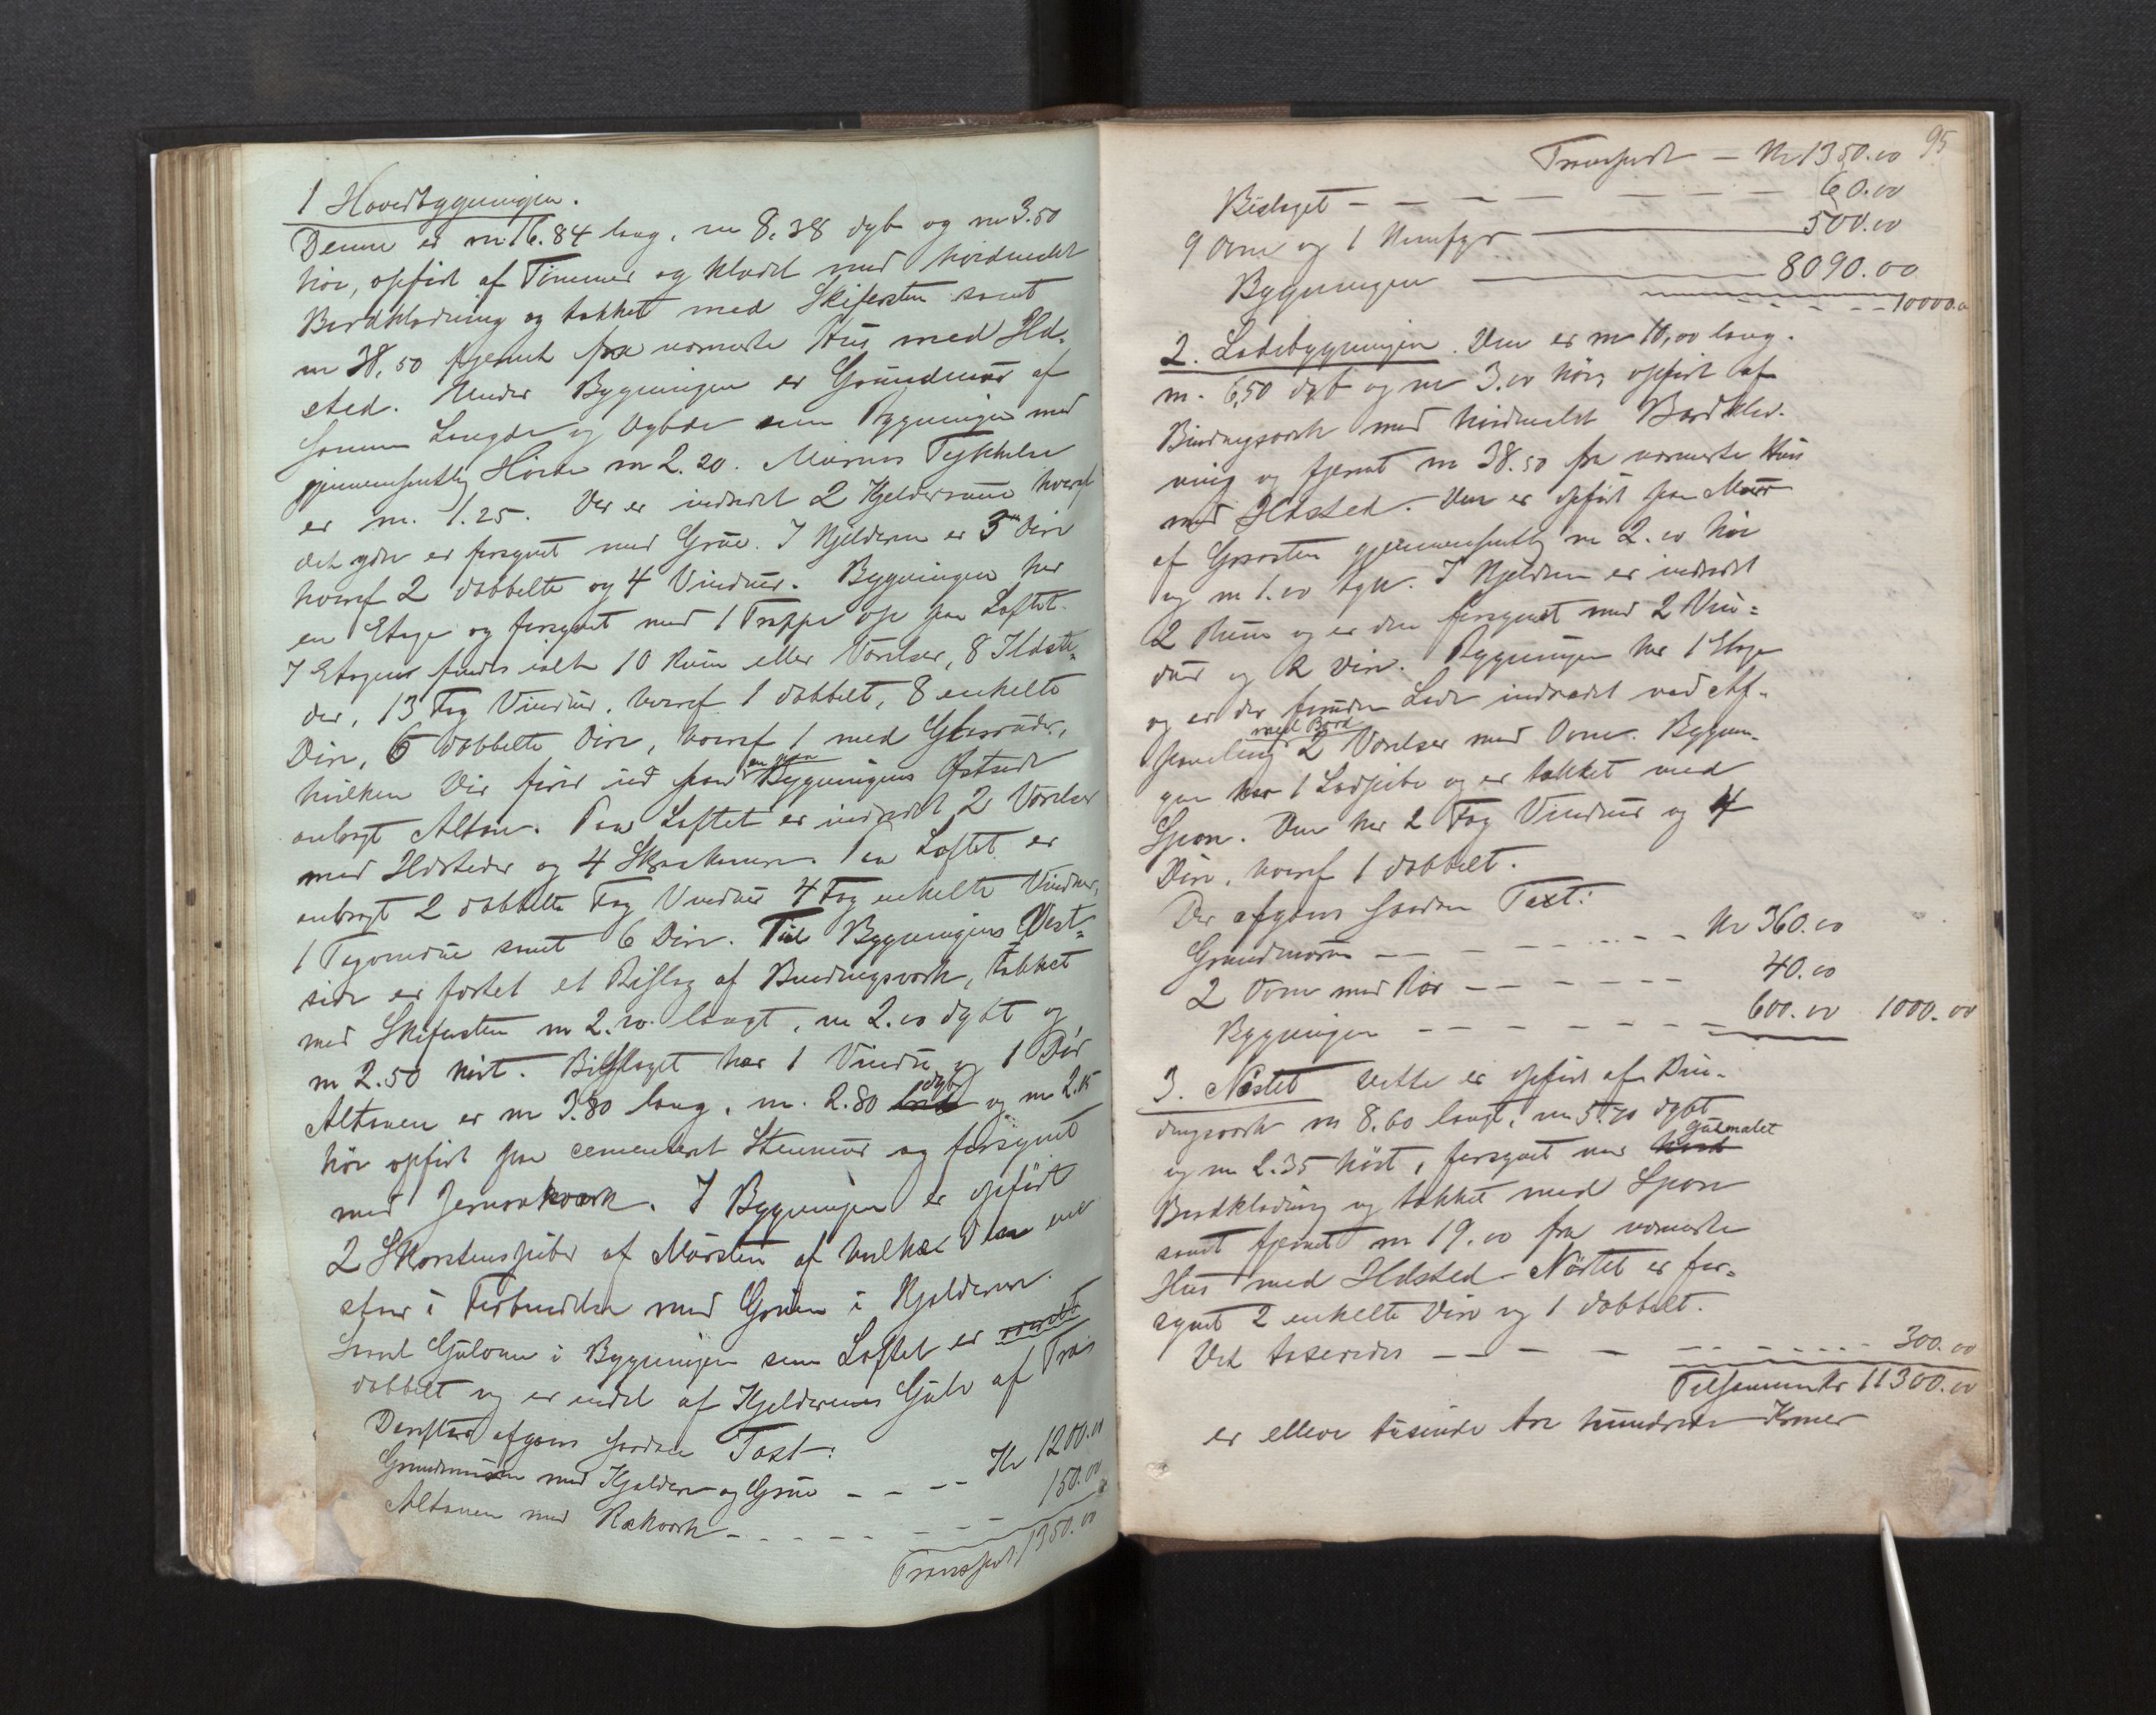 1 Hovedbygningen.
Denne er m 16.84 lang, m 8.38 dyb og m 3.50
høi, opført af Tømmer og klædt med hvidmalet
Bordklædning og tækket med Skifersten samt
m 38,50 fjernet fra nærmeste Hus med Ild-
sted. Under Bygningen er Grundmur af
samme Længde og Dybde som Bygningen med
gjennemsnitlig Høide m 2.20. Murens Tykkelse
er m. 1.25. Der er indredet 2 Kjelderrum hvoraf
det ydre er forsynet med Grue. I Kjelderen er 3 Døre
hvoraf 2 dobbelte og 4 Vinduer. Bygningen har
en Etage og forsynet med 1 Trappe op paa Loftet.
I Etagens findes ialt 10 Rum eller Værelser, 8 Ildste-
der, 13 Fag Vinduer, hvoraf 1 dobbelt, 8 enkelte
Døre, 6 dobbelte Døre, hvoraf 1 med Glasruder,
hvilken Dør fører ud paa en paa Bygningens Østside
anbragt Altan. Paa Loftet er indredet 2 Værelser
med Ildsteder og 4 Skraakamre. Paa Loftet er
anbragt 2 dobbelte Fag Vinduer 4 Fag enkelte Vinduer,
1 Tagvindue samt 6 Døre. Til Bygningens Vest-
side er føiet et Bislag af Bindingsværk, tækket
med Skifersten m 2.20 langt, m 2.00 dybt og
m 2.50 høit. Bislaget har 1 Vindu og 1 Dør
Altanen er m 3.80 lang, m. 2.80 dyb og m 2.15
høi opført paa cementeret Stenmur og forsynet
med Jernrækværk. I Bygningen er opført
2 Skorstenspiber af Mursten af hvilke den ene
staar i Forbindelse med Gruen i Kjelderen.
Saavel Gulvene i Bygningen som Loftet er
dobbelt og er endel af Kjelderens Gulv af Træ
Derefter afgaves saadan Taxt:
Grundmuren med Kjelder og Grue - - - - Kr 1200.00
Altanen med Rækværk - - - - - - - 150.00
Transport 1350.00
95
Transport - Kr 1350.00
Bislaget - - - - - - - 60.00
9 Ovne og 1 Komfyr 500.00
Bygningen 8090.00
- - - - 10000.00
2. Ladebygningen. Den er m 10,00 lang.
m. 6,50 dyb og m 3.00 høi, opført af
Bindingsværk med hvidmalet Bordklæd-
ning og fjernet m 38.50 fra nærmeste Hus
med Ildsted. Den er opført paa Mur
af Graasten gjennemsnitlig m 2.00 høi
og m 1.00 tyk. I Kjelderen er indredet
2 Rum og er den forsynet med 2 Vin-
duer og 2 Døre. Bygningen har 1 Etage
og er der foruden Lade indredet ved Af-
paneling med Bord 2 Værelser med Ovne. Bygnin-
gen har 1 Ladpibe og er tækket med
Spon. Den har 2 Fag Vinduer og 4
Døre, hvoraf 1 dobbelt.
Der afgaves saadan Taxt:
Grundmuren - - - - - - - Kr 360.00
2 Ovne med Rør - - - - - - 40.00
Bygningen - - - - - - - 600.00 1000.00
3. Nøstet Dette er opført af Bin-
dingsværk m 8.60 langt, m 5.70 dybt
og m 2.35 høit, forsynet med gulmalet
Bordklædning og tækket med Spon
samt fjernet m 19.00 fra nærmeste
Hus med Ildsted. Nøstet er for-
synet 2 enkelte Døre og 1 dobbelt.
Det taxeredes - - - - - - - - 300.00
Tilsammen Kr 11300.00
er elleve tusinde tre hundrede Kroner